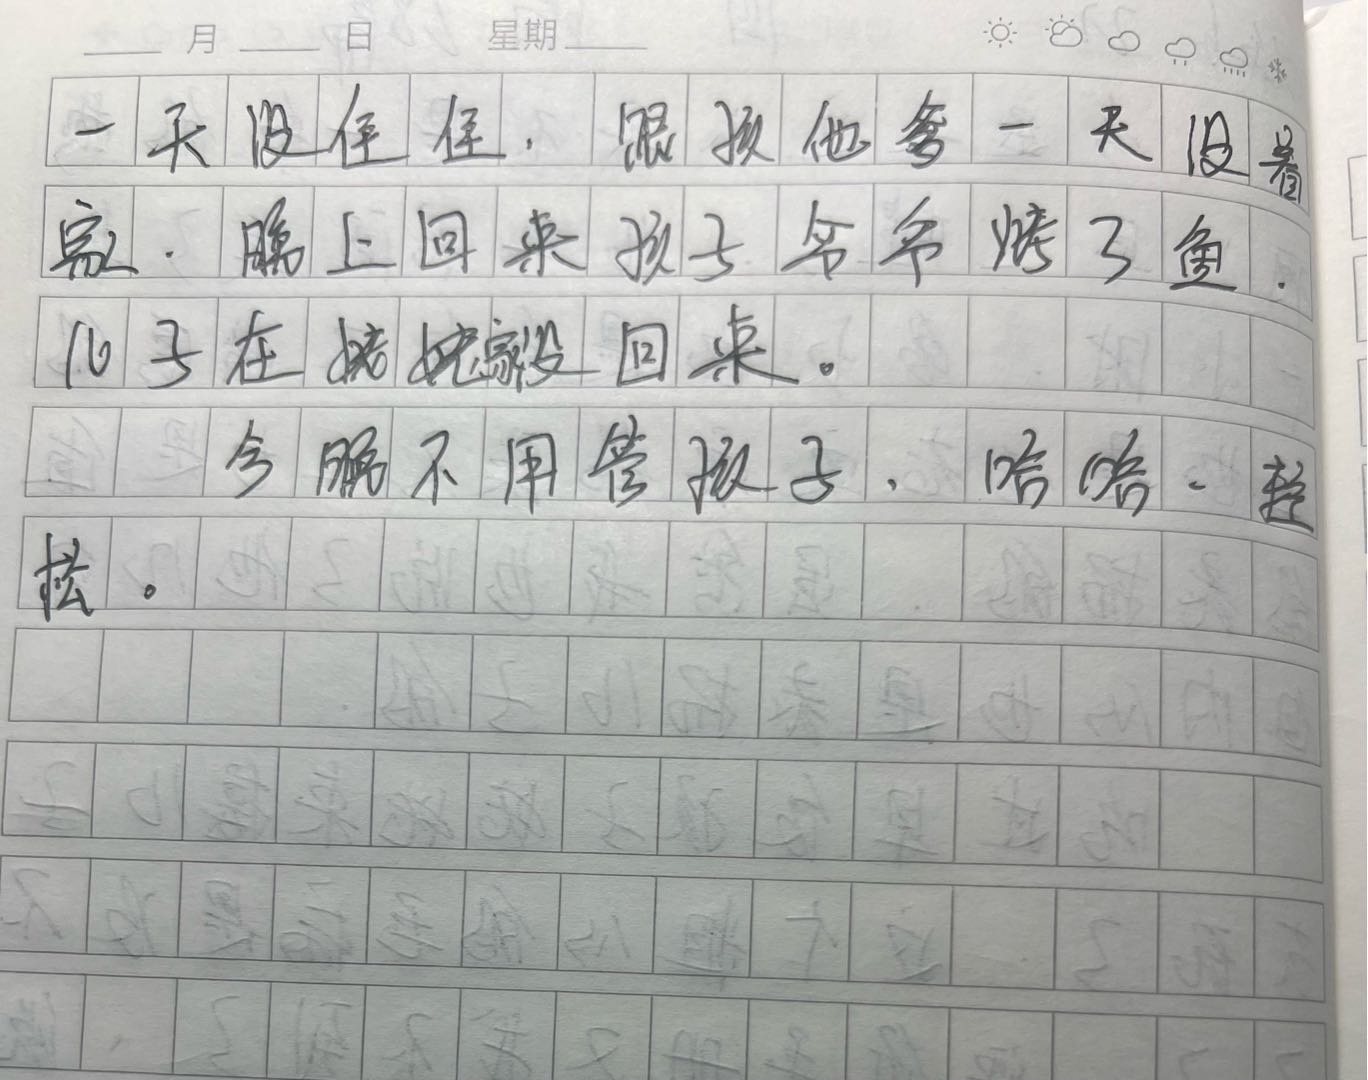 月 日 星期
一天没住住,跟孩他爹一天没着
家.晚上回来孩子爷爷烤了鱼.
儿子在姥姥家没回来。
今晚不用管孩子,哈哈.轻
松。